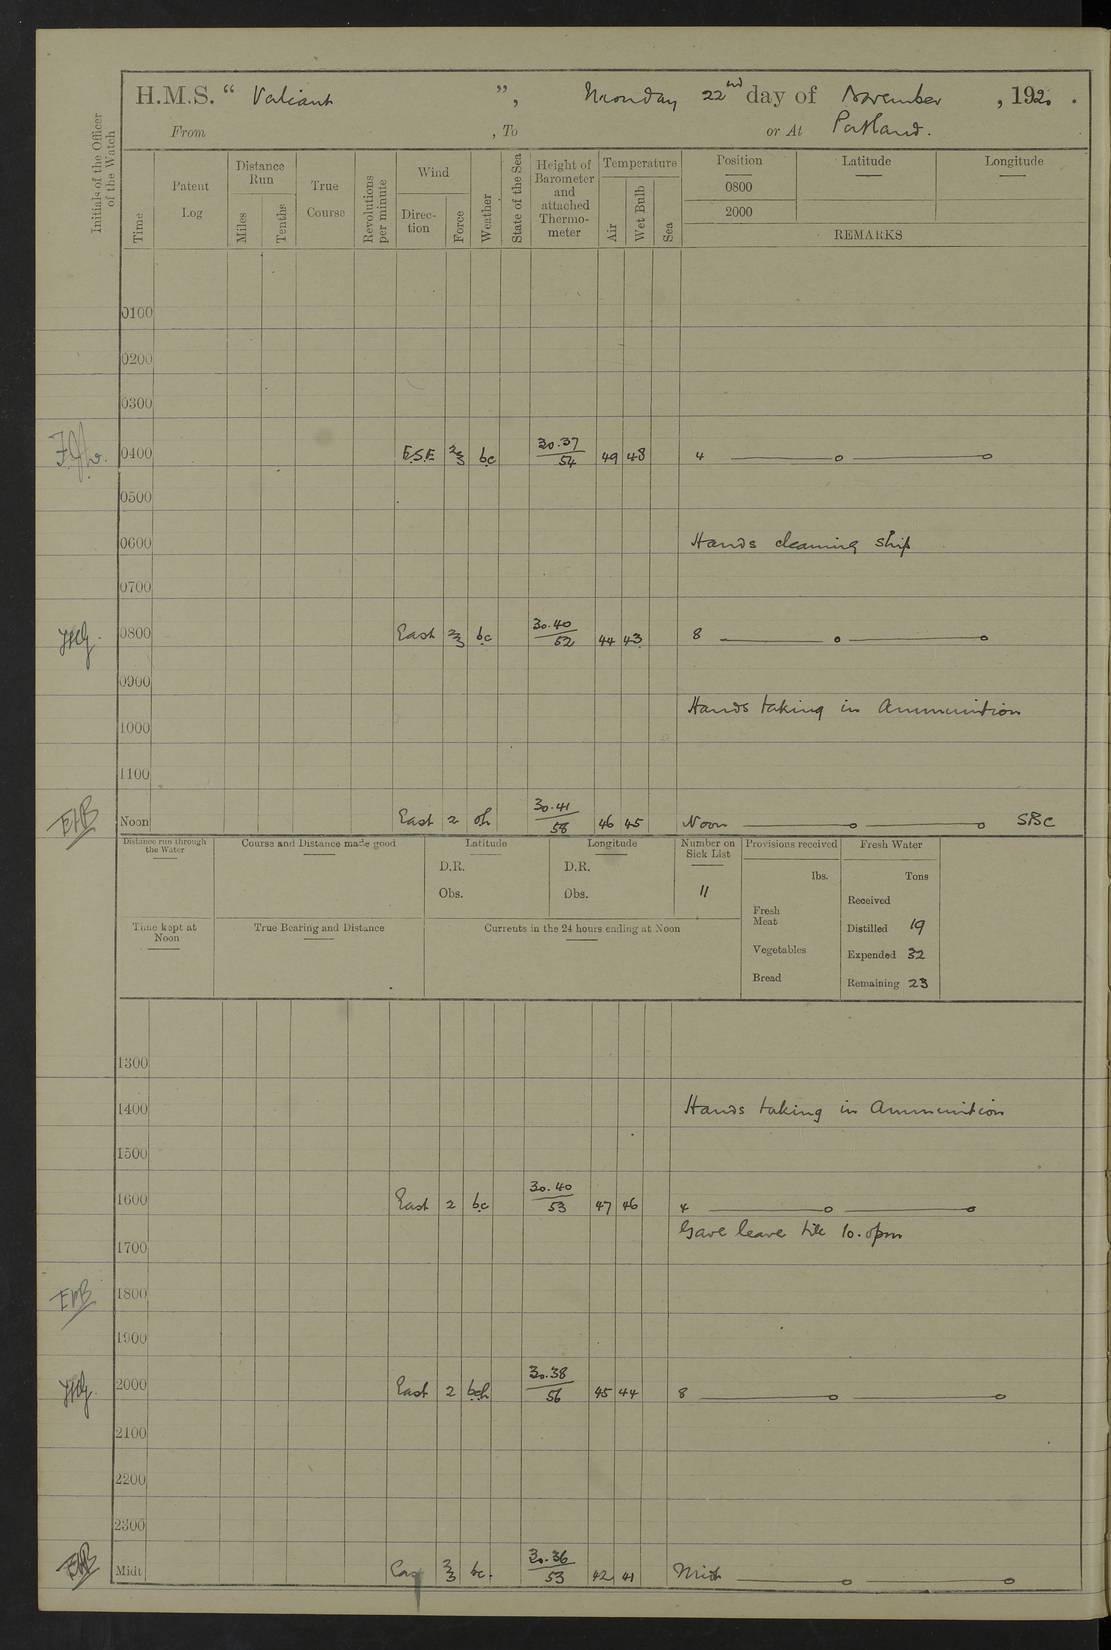 H.M.S. “ Valiant ”, Monday 22nd day of November , 1920 .
From , To or At Portland.
Initials of the Officer of the Watch
Time
Patent Log
Distance Run
Miles
Tenths
True Course
Revolutions per minute
Wind
Direc- tion
Force
Weather
State of the Sea
Height of Barometer and attached Thermo- meter
Temperature
Air
Wet Bulb
Sea
Position Latitude Longitude
0800
2000
REMARKS
0100
0200
0300
0400 E.S.E 2/3 bc 30.37/54 49 48 4
0500
0600 Hands cleaning ship
0700
0800 East 2/3 bc 30.40/52 44 43 8
0900
Hands taking in Ammunition
1000
1100
EHB Noon East 2 oh 30.41/58 46 45 Noon SBC
Distance run through the Water
Course and Distance made good
Latitude
D.R.
Obs.
Longitude
D.R.
Obs.
Number on Sick List
11
Provisions received
lbs.
Fresh Meat
Vegetables
Bread
Fresh Water
Tons
Received
Distilled 19
Expended 32
Remaining 23
Time kept at Noon
True Bearing and Distance
Currents in the 24 hours ending at Noon
1300
1400 Hands taking in Ammunition
1500
1600 East 2 bc 30.40/53 47 46 4
Gave leave till 10.0pm
1700
EHB 1800
1900
2000 East 2 bch 30.38/56 45 44 8
2100
2200
2300
EHB Midt 2/3 bc. 30.36/53 42 41 Midt